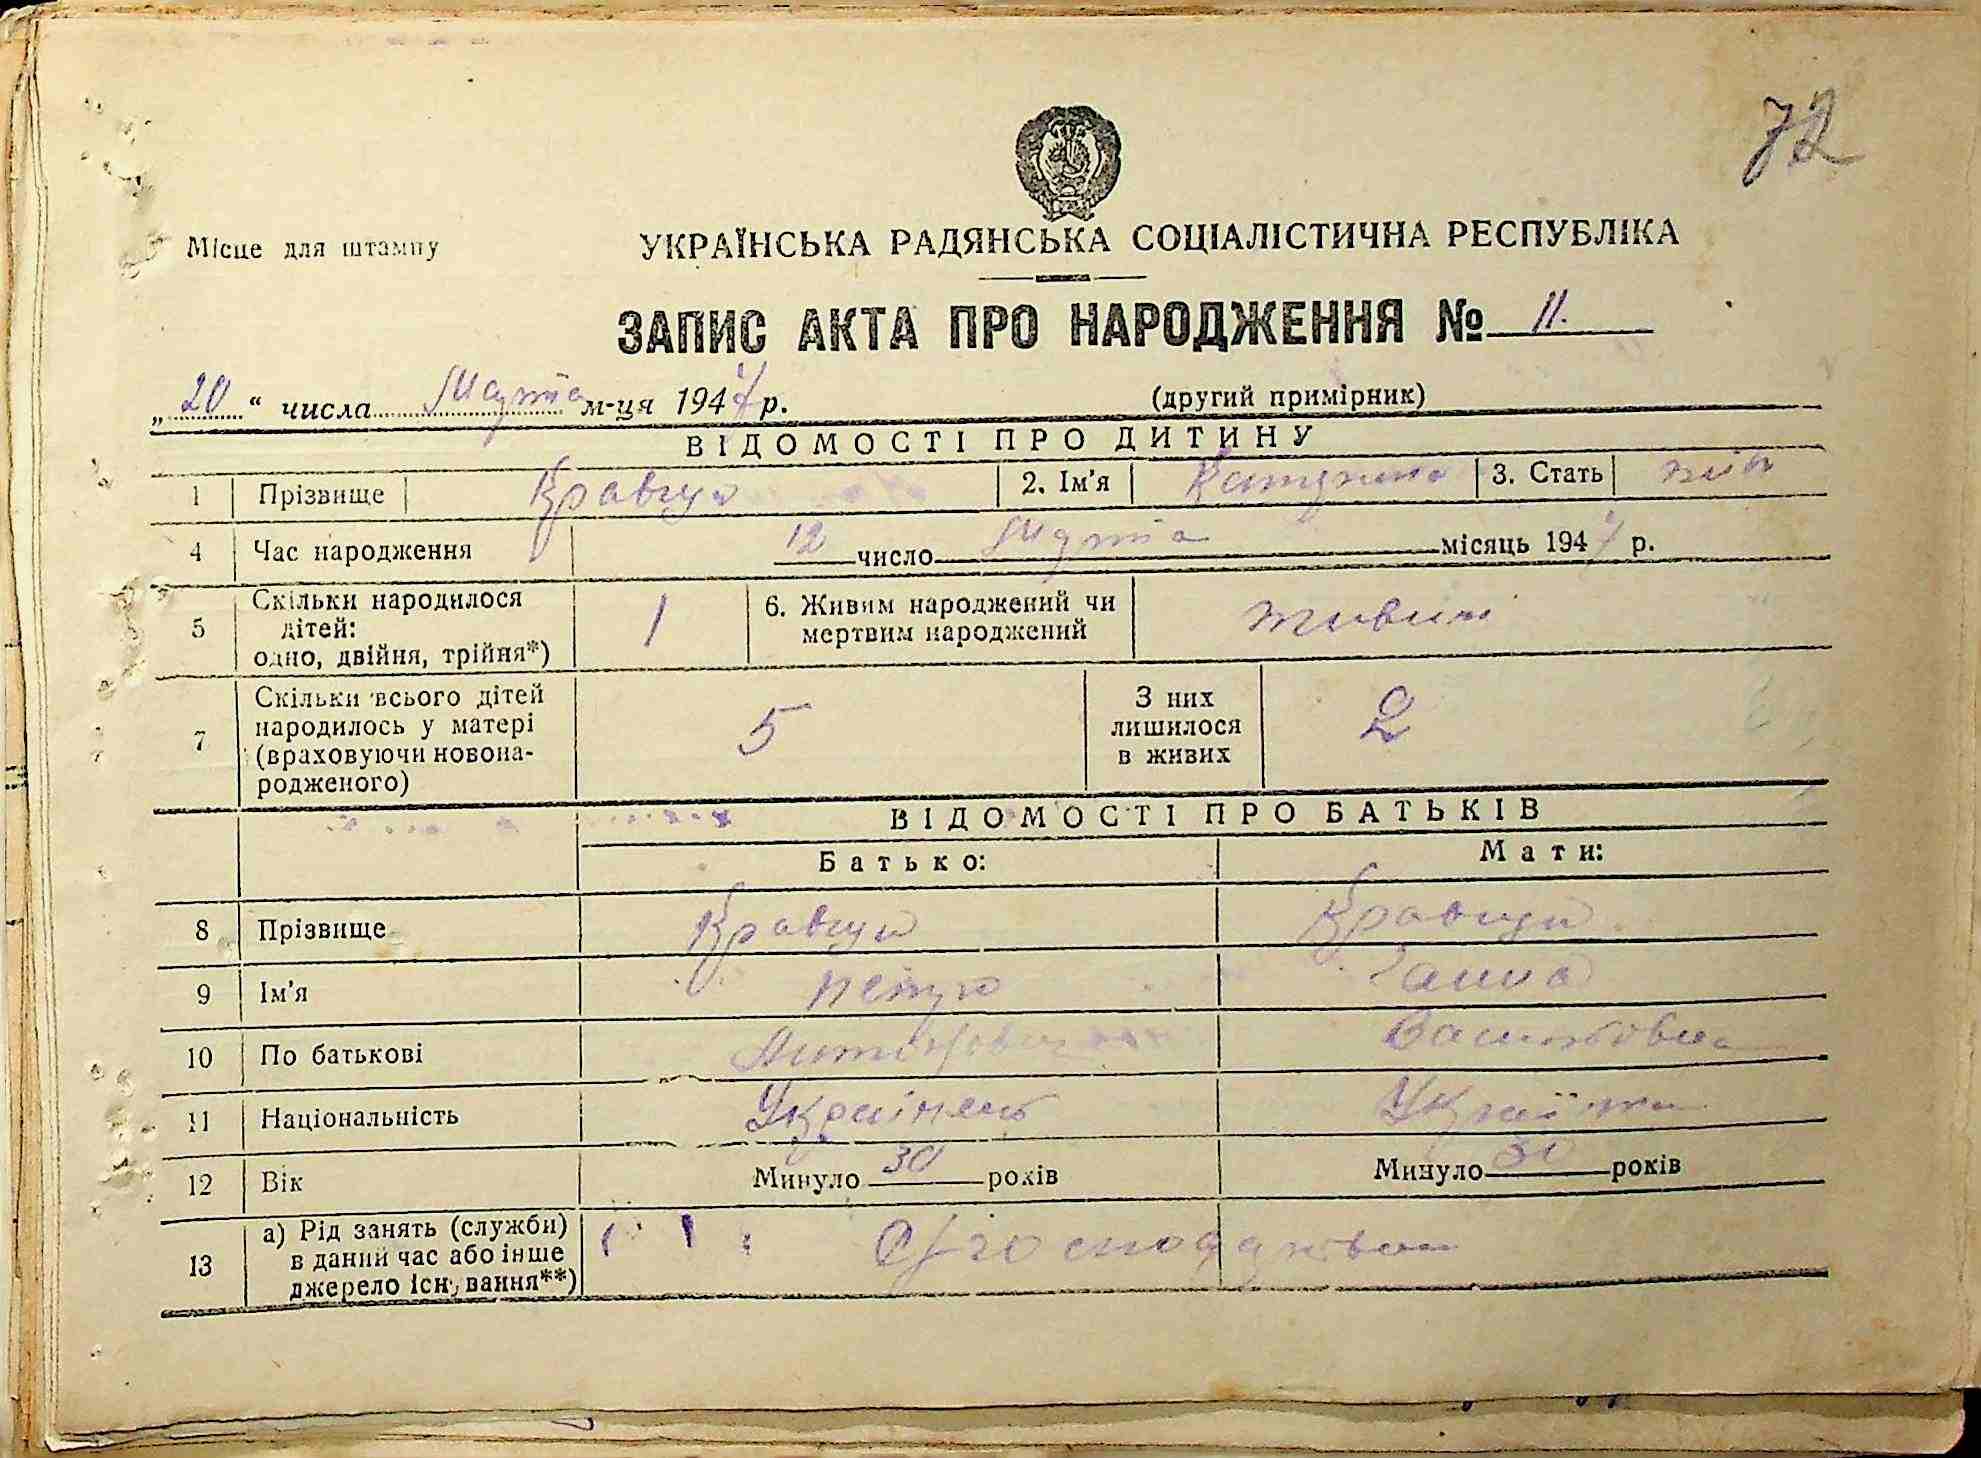 72
Місце для штампу
УКРАЇНСЬКА РАДЯНСЬКА СОЦІАЛІСТИЧНА РЕСПУБЛІКА
ЗАПИС АКТА ПРО НАРОДЖЕННЯ № 11.
„20“ числа Марта м-ця 1947 р. (другий примірник)
ВІДОМОСТІ ПРО ДИТИНУ
1 Прізвище Кравчук 2. Ім'я Катерина 3. Стать жін
4 Час народження 12 число Марта місяць 1947 р.
5 Скільки народилося дітей: одно, двійня, трійня*) 1 6. Живим народжений чи мертвим народжений живим
7 Скільки всього дітей народилось у матері (враховуючи новонародженого) 5 З них лишилося в живих 2
ВІДОМОСТІ ПРО БАТЬКІВ
Батько: Мати:
8 Прізвище
9 Ім'я Петро Ганна
10 По батькові Антонович
11 Національність Українець Українка
12 Вік Минуло 30 років Минуло 30 років
13 а) Рід занять (служби) в даний час або інше джерело існування**)